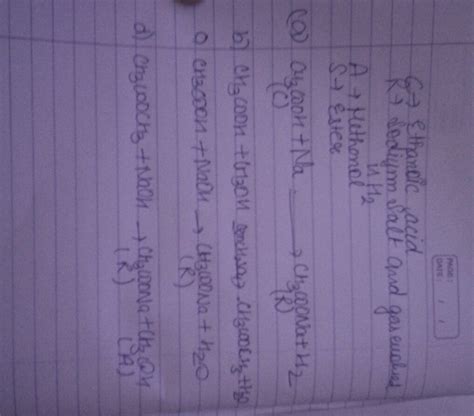 PAGE:
DATE:
C → Ethanoic acid
R → Sodium salt and gas evolved
is H2
A → Methanol
S → Ester
(a) CH3COOH + Na → CH3COONa + H2
(C) (R)
b) CH3COOH + CH3OH → CH3COOCH3 + H2O
c) CH3COOH + NaOH → CH3COONa + H2O
(R)
d) CH3COOCH3 + NaOH → CH3COONa + CH3OH
(R) (A)